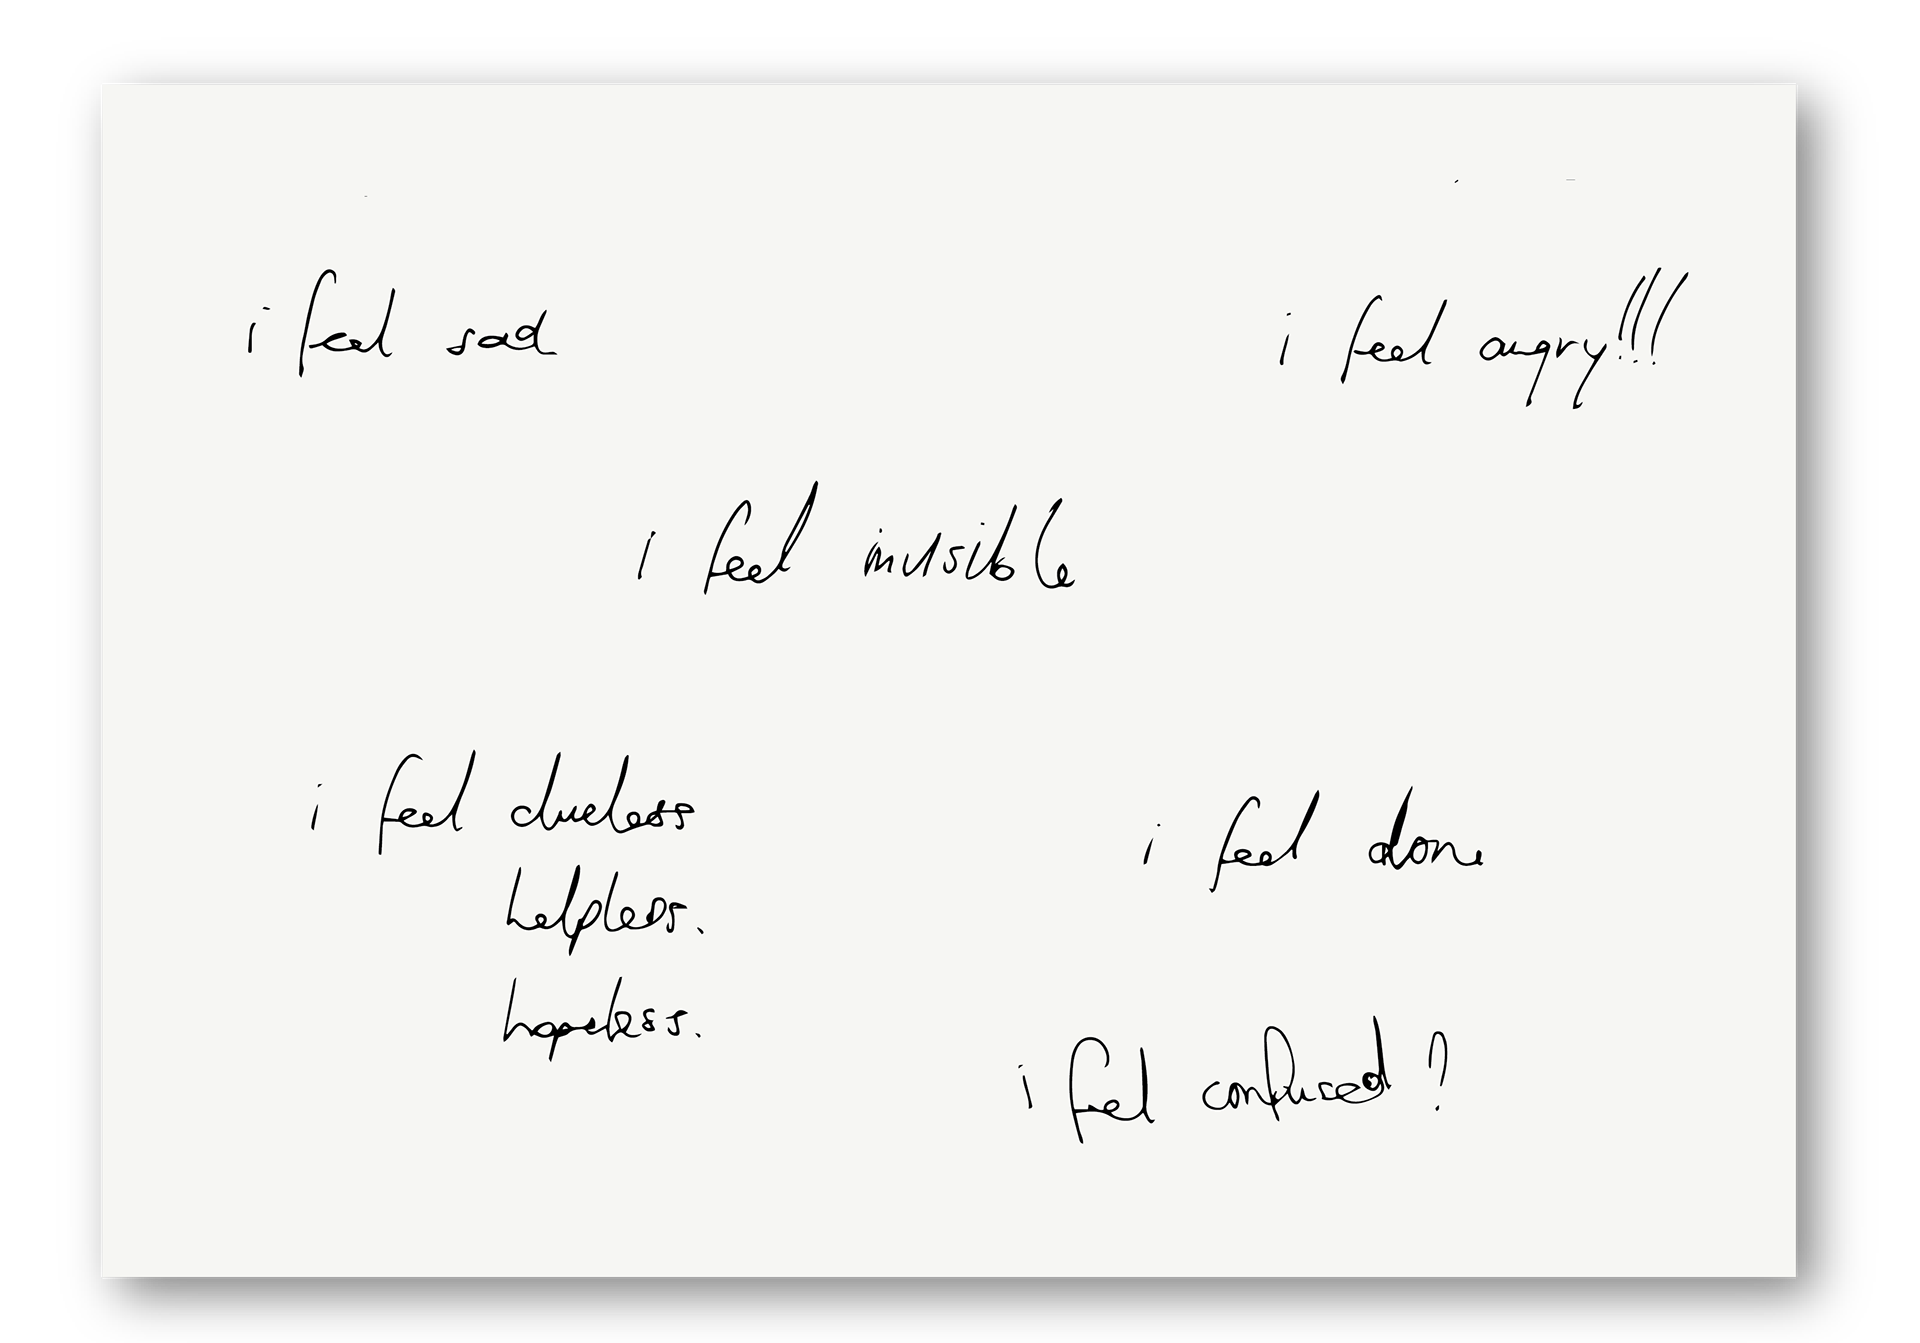 i feel sad
i feel angry!!!
i feel invisible
i feel clueless
helpless.
hopeless.
i feel done
i feel confused?